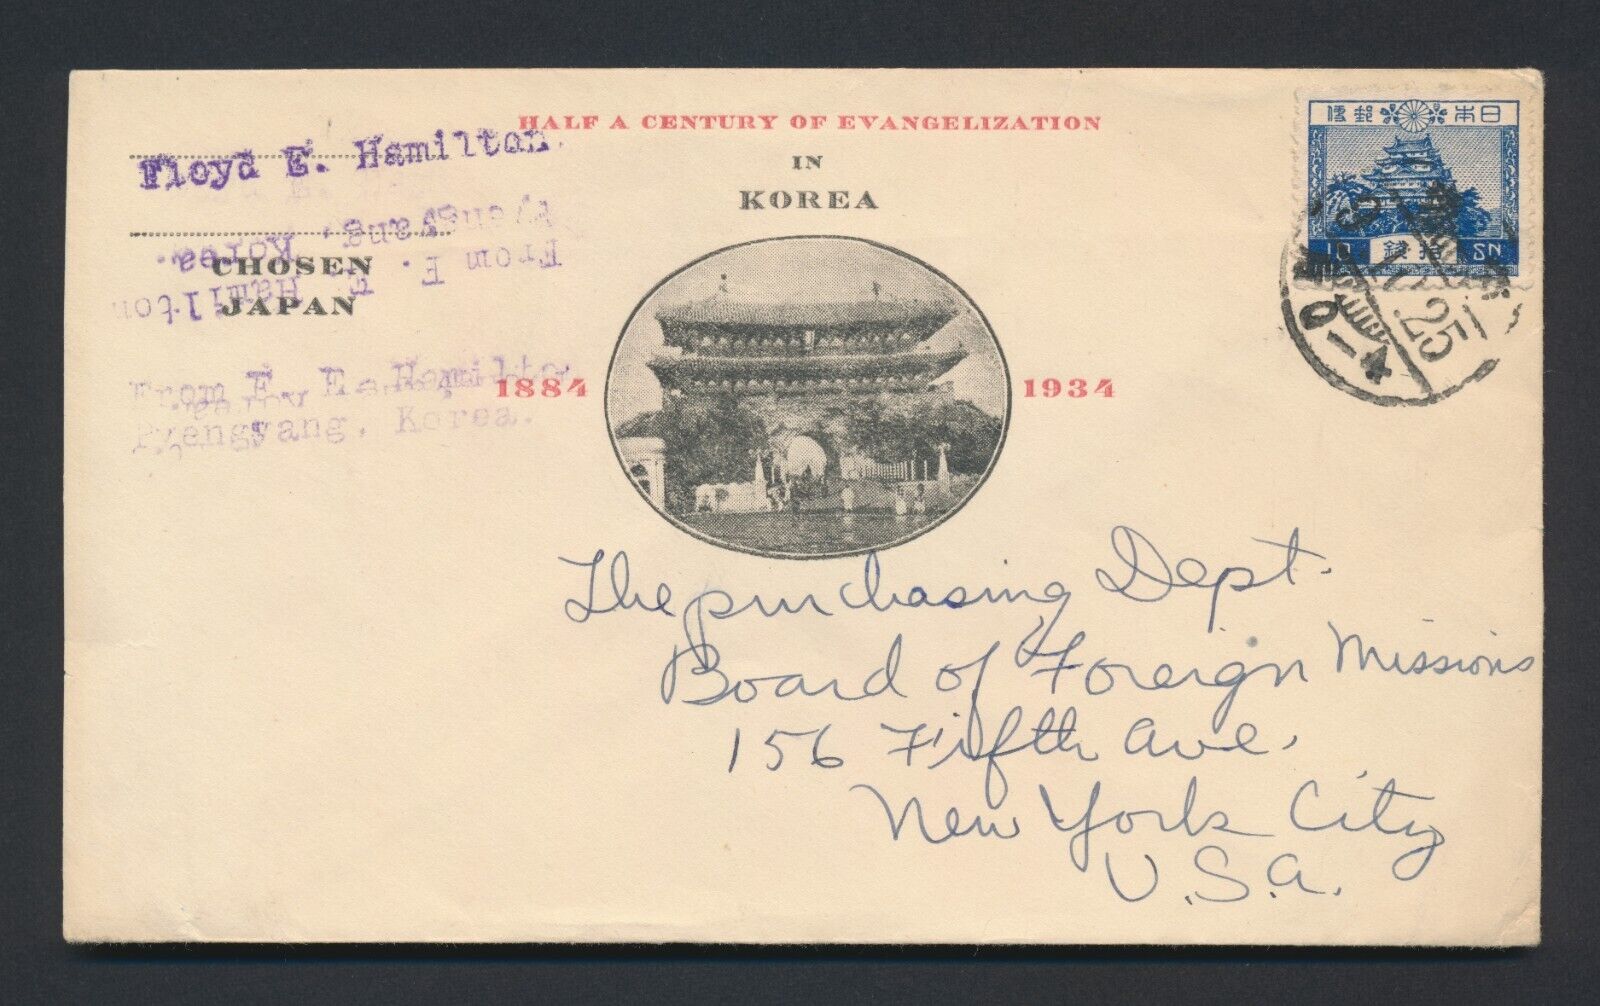 HALF A CENTURY OF EVANGELIZATION
IN
KOREA
Floyd E. Hamilton
From F. E. Hamilton
Pyengyang, Korea.
CHOSEN
JAPAN
From F. E. Hamilto
Pyengyang, Korea.
1884
1934
便郵本日
10 錢拾 SN
25
The purchasing Dept.
Board of Foreign Missions
156 Fifth Ave.
New York City
U.S.A.